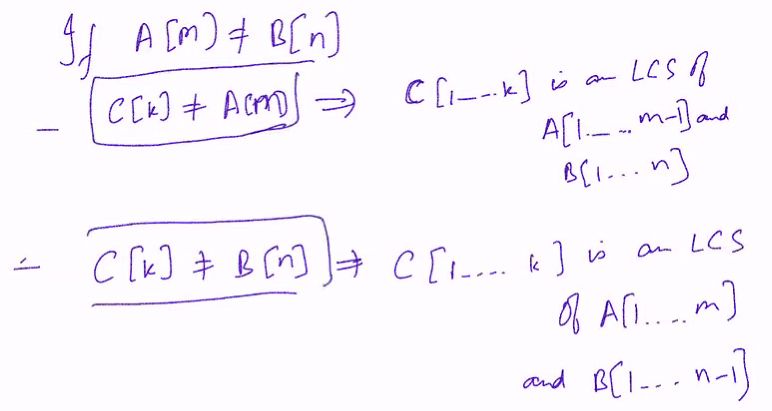 If A[m] ≠ B[n]
- C[k] ≠ A[m] ⇒ C[1---k] is an LCS of
A[1.-..m-1] and
B[1...n]
- C[k] ≠ B[n] ⇒ C[1.... k] is an LCS
of A[1.....m]
and B[1--- n-1]